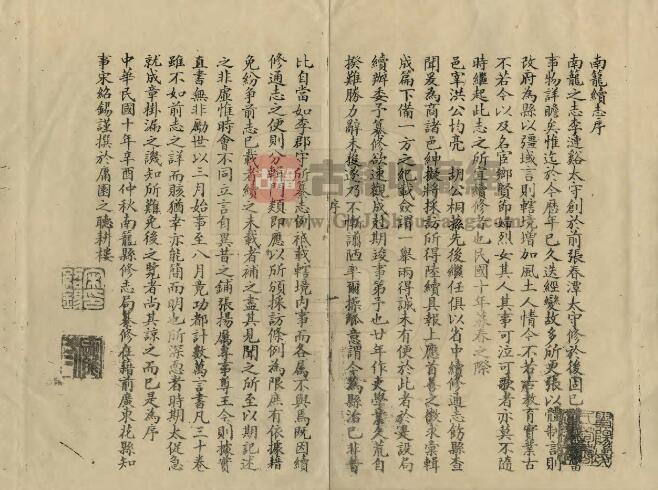 南龍續志序
南籠之志李漣谿太守創於前張春潭太守修於後固已
事物詳贍矣惟迄于今歷年已久迭經變故多所更張以制言則
改府為縣以疆域言則轄境增加風土人情今不若古教育實業古
不若今以及名宦鄉賢節婦烈女其人其事可泣可歌者亦莫不隨
時繼起此志之所宜續修者也民國十年暮春之際
邑宰洪公杓亮 胡公桐蓀先後繼任俱以省中續修通志飭縣查
聞爰為商諸邑紳擬將採訪所得陸續具報上應首善之徵求彙輯
成篇下備一方之紀載僉謂一舉兩得誠未有便於此者於是設局
續辦委予纂修欲速觀成尅期竣事第予也廿年作吏學業久荒自
揆難勝力辭未獲遂乃不慚譾陋率爾操觚意謂今為縣治已非昔
比自當如李郡守所纂志例祇載轄境內事而各屬不與焉既因續
修通志之便則分門類即應以所頒採訪條例為限庶有依據藉
免紛爭前志已載者續之未載者補之盡其見聞之所至以期記述
之非虛惟時會不同立言自異昔之鋪張揚厲專事尊王今則據實
直書無非勵世以三月始事至八月竟功都計數萬言書凡二十卷
雖不如前志之詳而賅猶幸亦能簡而明也所深惡者時期太促急
就成章掛漏之譏知所難免後之覽者尚其諒之而已是為序
中華民國十年辛酉仲秋南籠縣修志局纂修在籍前廣東花縣知
事宋紹錫謹撰於屬園之聽耕樓